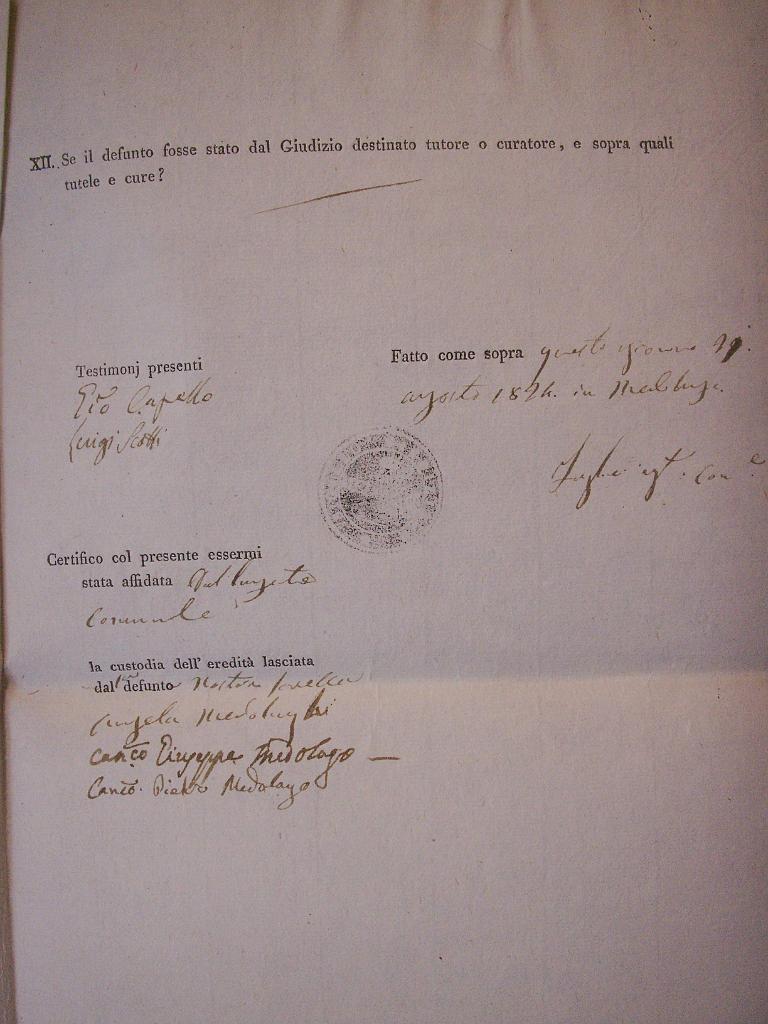 XII. Se il defunto fosse stato dal Giudizio destinato tutore o curatore, e sopra quali
tutele e cure?
Fatto come sopra questo giorno
agosto 1824. in
Testimonj presenti
Pió Capello
Luigi Scotti
Certifico col presente essermi
stata affidata
comunale
la custodia dell' eredità lasciata
dal defunto nostra sorella
Angela
Canco Giuseppe Medolago
Canco. Pietro Medolago